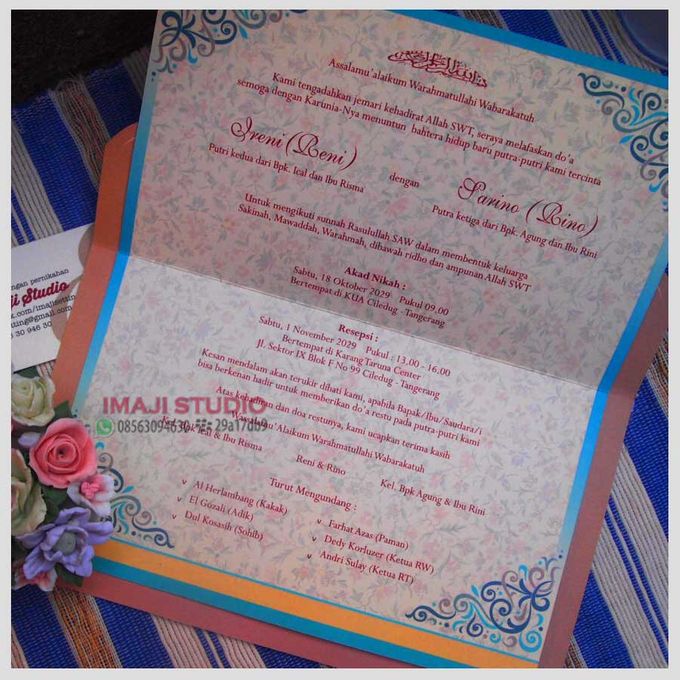 Assalamu'alaikum Warahmatullahi Wabarakatuh
Kami tengadahkan jemari kehadirat Allah SWT, seraya melafaskan do'a
semoga dengan Karunia-Nya menuntun bahtera hidup baru putra-putri kami tercinta
Ireni (Reni)
Putri kedua dari Bpk. Ical dan Ibu Risma
dengan
Sarino (Rino)
Putra ketiga dari Bpk. Agung dan Ibu Rini
Untuk mengikuti sunnah Rasulullah SAW dalam membentuk keluarga
Sakinah, Mawaddah, Warahmah, dibawah ridho dan ampunan Allah SWT
Akad Nikah :
Sabtu, 18 Oktober 2029 Pukul 09.00
Bertempat di KUA Ciledug -Tangerang
Resepsi :
Sabtu, 1 November 2029 Pukul : 13.00 - 16.00
Bertempat di Karang Taruna Center
Jl. Sektor IX Blok F No 99 Ciledug -Tangerang
Kesan mendalam akan terukir dihati kami, apabila Bapak/Ibu/Saudara/i
bisa berkenan hadir untuk memberikan do'a restu pada putra-putri kami
Atas kehadiran dan doa restunya, kami ucapkan terima kasih
Wassalamu'Alaikum Warahmatullahi Wabarakatuh
Ical & Ibu Risma
Reni & Rino
Kel. Bpk Agung & Ibu Rini
Turut Mengundang :
Al Herlambang (Kakak)
El Gozali (Adik)
Dul Kosasih (Sohib)
Farhat Azas (Paman)
Dedy Korluzer (Ketua RW)
Andri Sulay (Ketua RT)
ngan pernikahan
ji Studio
k.com/imajisetsin
ting@gmail.com
6 30 946 30
IMAJI STUDIO
08563094630 29a17db9